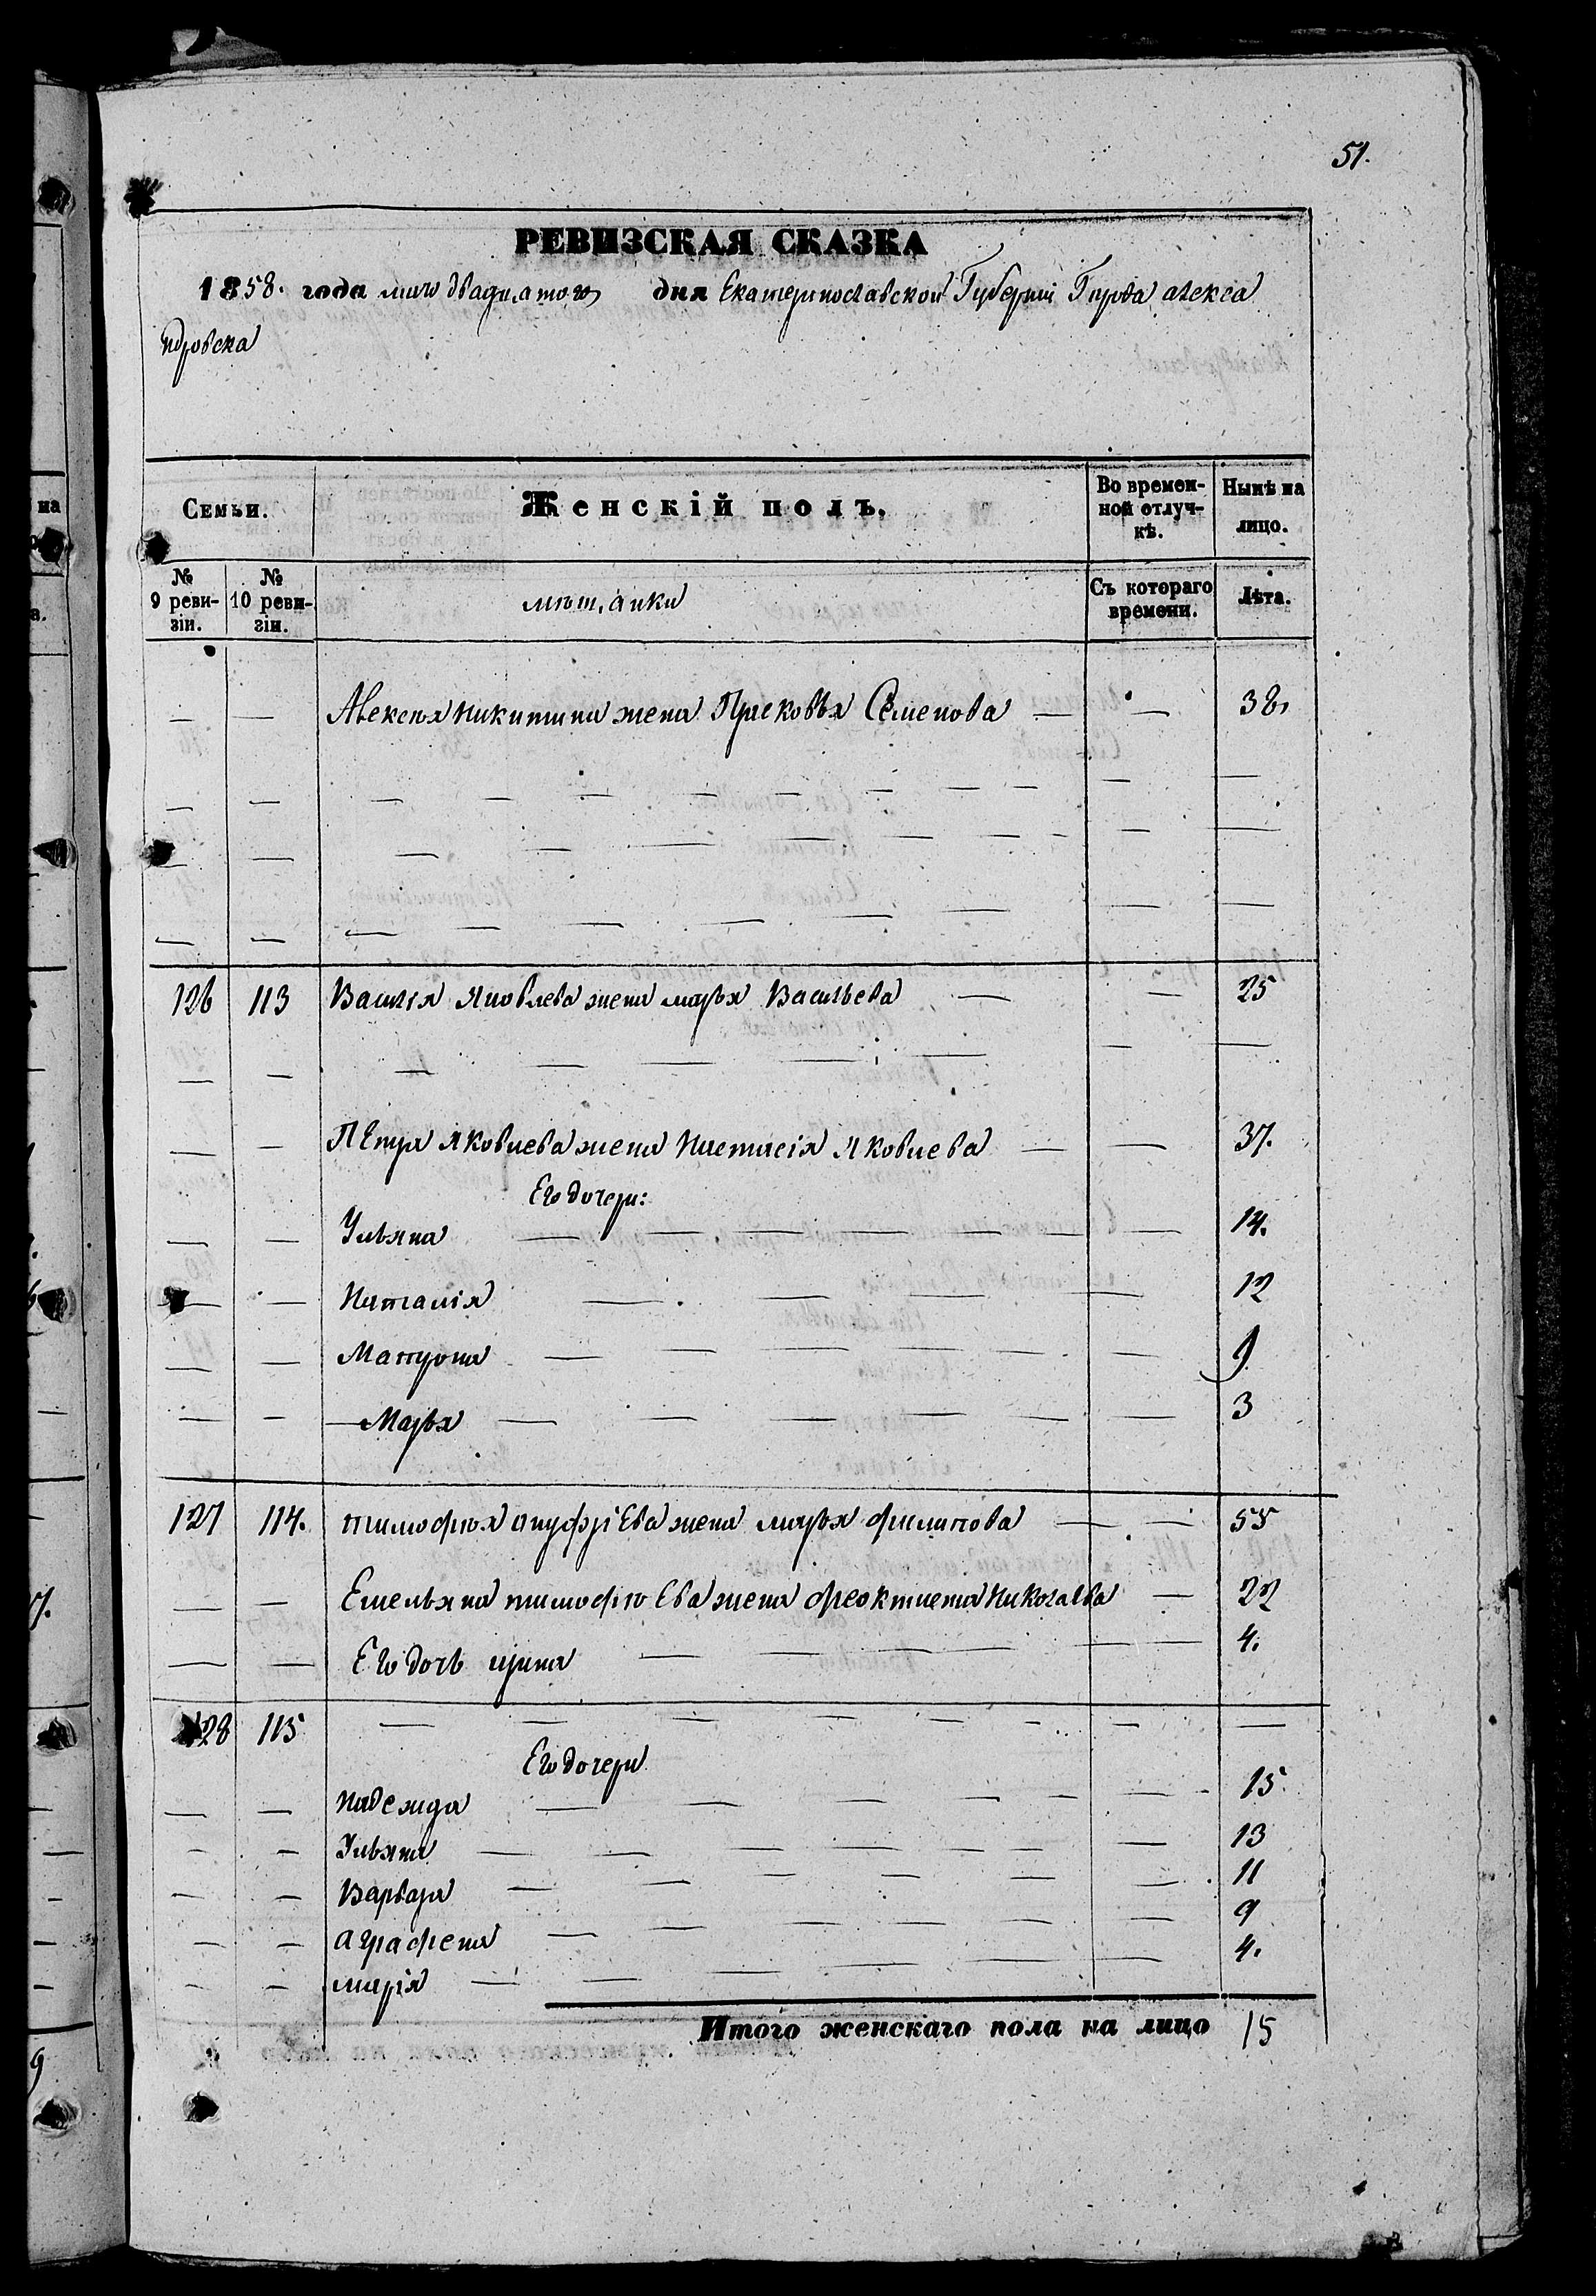 51.
РЕВИЗСКАЯ СКАЗКА
1858. года мая двадцатого дня Екатеринославской Губернии Города алекса
ндровска
Семьи. Женскій полъ. Во времен-ной отлуч-кѣ. Нынѣ на лицо.
№ 9 реви-зіи. № 10 реви-зіи. мѣщанки Съ котораго времени. Лѣта.
— — Алексѣя никитина жена Прасковья Семенова — — 38.
126 113 Василія Яковлева жена марья Васильева — — 25
— — Петра Яковлева жена Настасія Яковлева — — 37.
Его дочери:
— — Ульяна — — 14.
— — Наталія — — 12
— — Матрона — — 9
— — Марья — — 3
127 114. тимофѣя ануфріева жена марья филипова — — 55
— — Емельяна тимофѣева жена феоктиста Николаева — 22
— — Его дочь ирина — — 4.
128 115 — — —
Его дочери
— — надежда — — 15
— — Ульяна — — 13
— — Варвара — — 11
— — аграфена — — 9
— — марія — — 4.
Итого женскаго пола на лицо 15